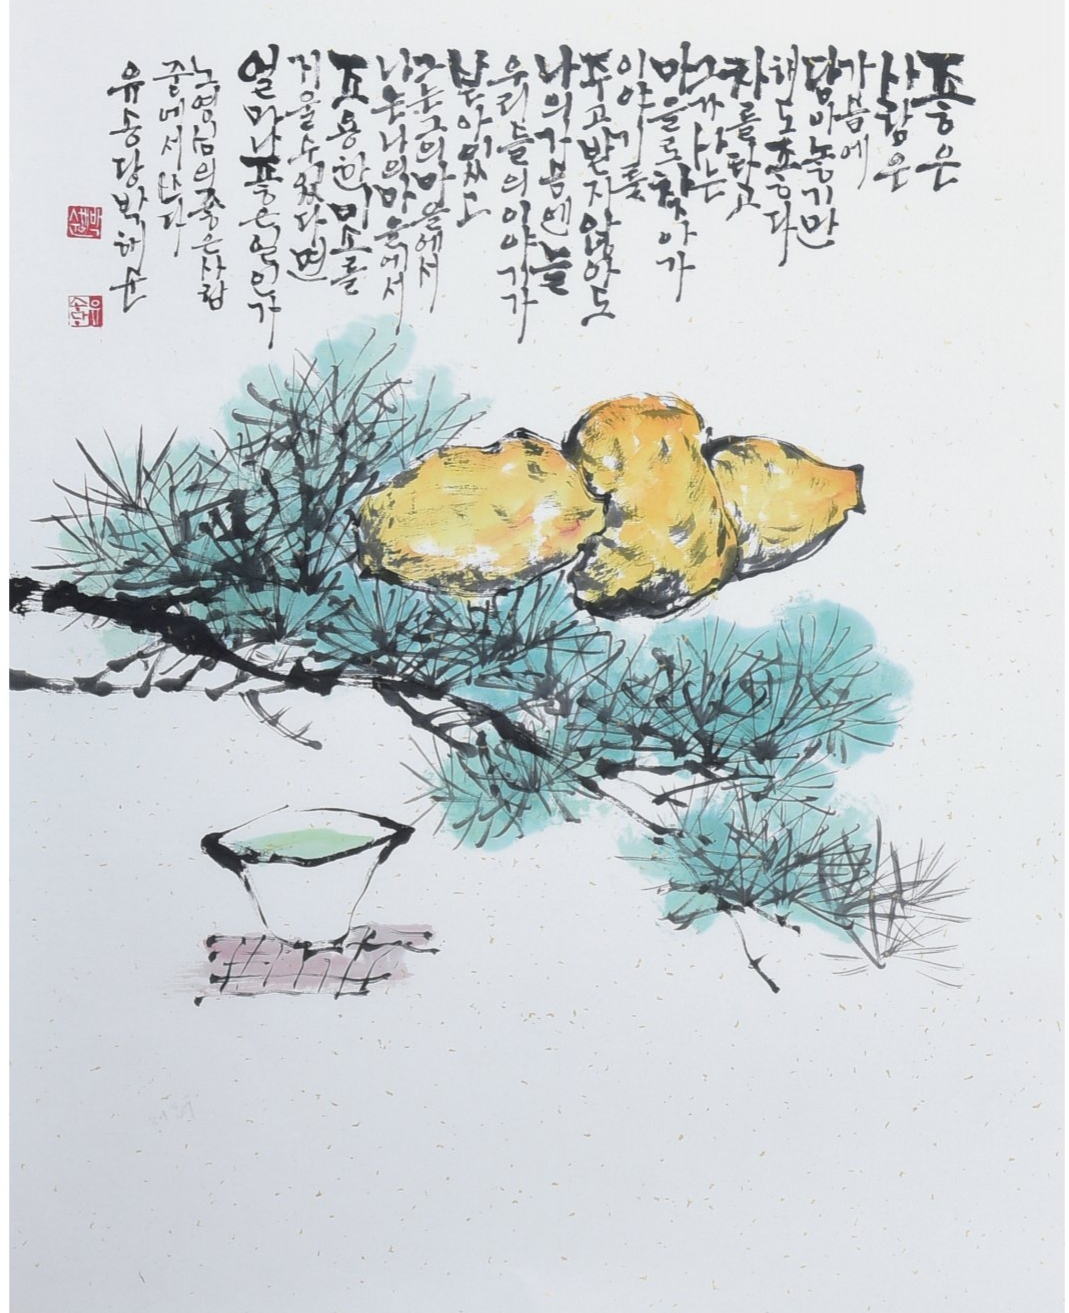 좋은
사람은
가슴에
담아놓기만
해도좋다
차를타고
그가사는
마을로찾아가
이야기를
주고받지않아도
나의가슴엔늘
우리들의이야기가
살아있고
그는그의마을에서
나는나의마을에서
조용한미소를
지을수있다면
얼마나좋은일인가
노영심의좋은사람
중에서쓰다
유송당박혜순